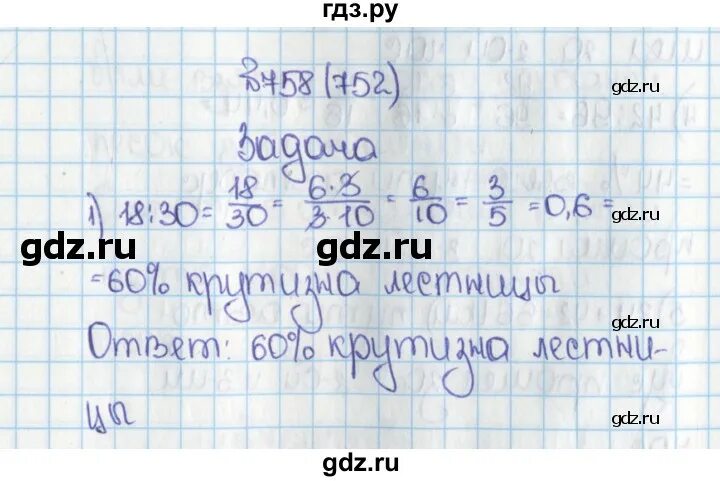 гдз.ру
№758 (752)
gdz.ru
Задача
1) 18:30 = 18/30 = 6·3/3·10 = 6/10 = 3/5 = 0,6 =
gdz.ru
gdz.ru gdz.ru
= 60% крутизна лестницы
gdz.ru
Ответ: 60% крутизна лестни-
цы
gdz.ru
gdz.ru